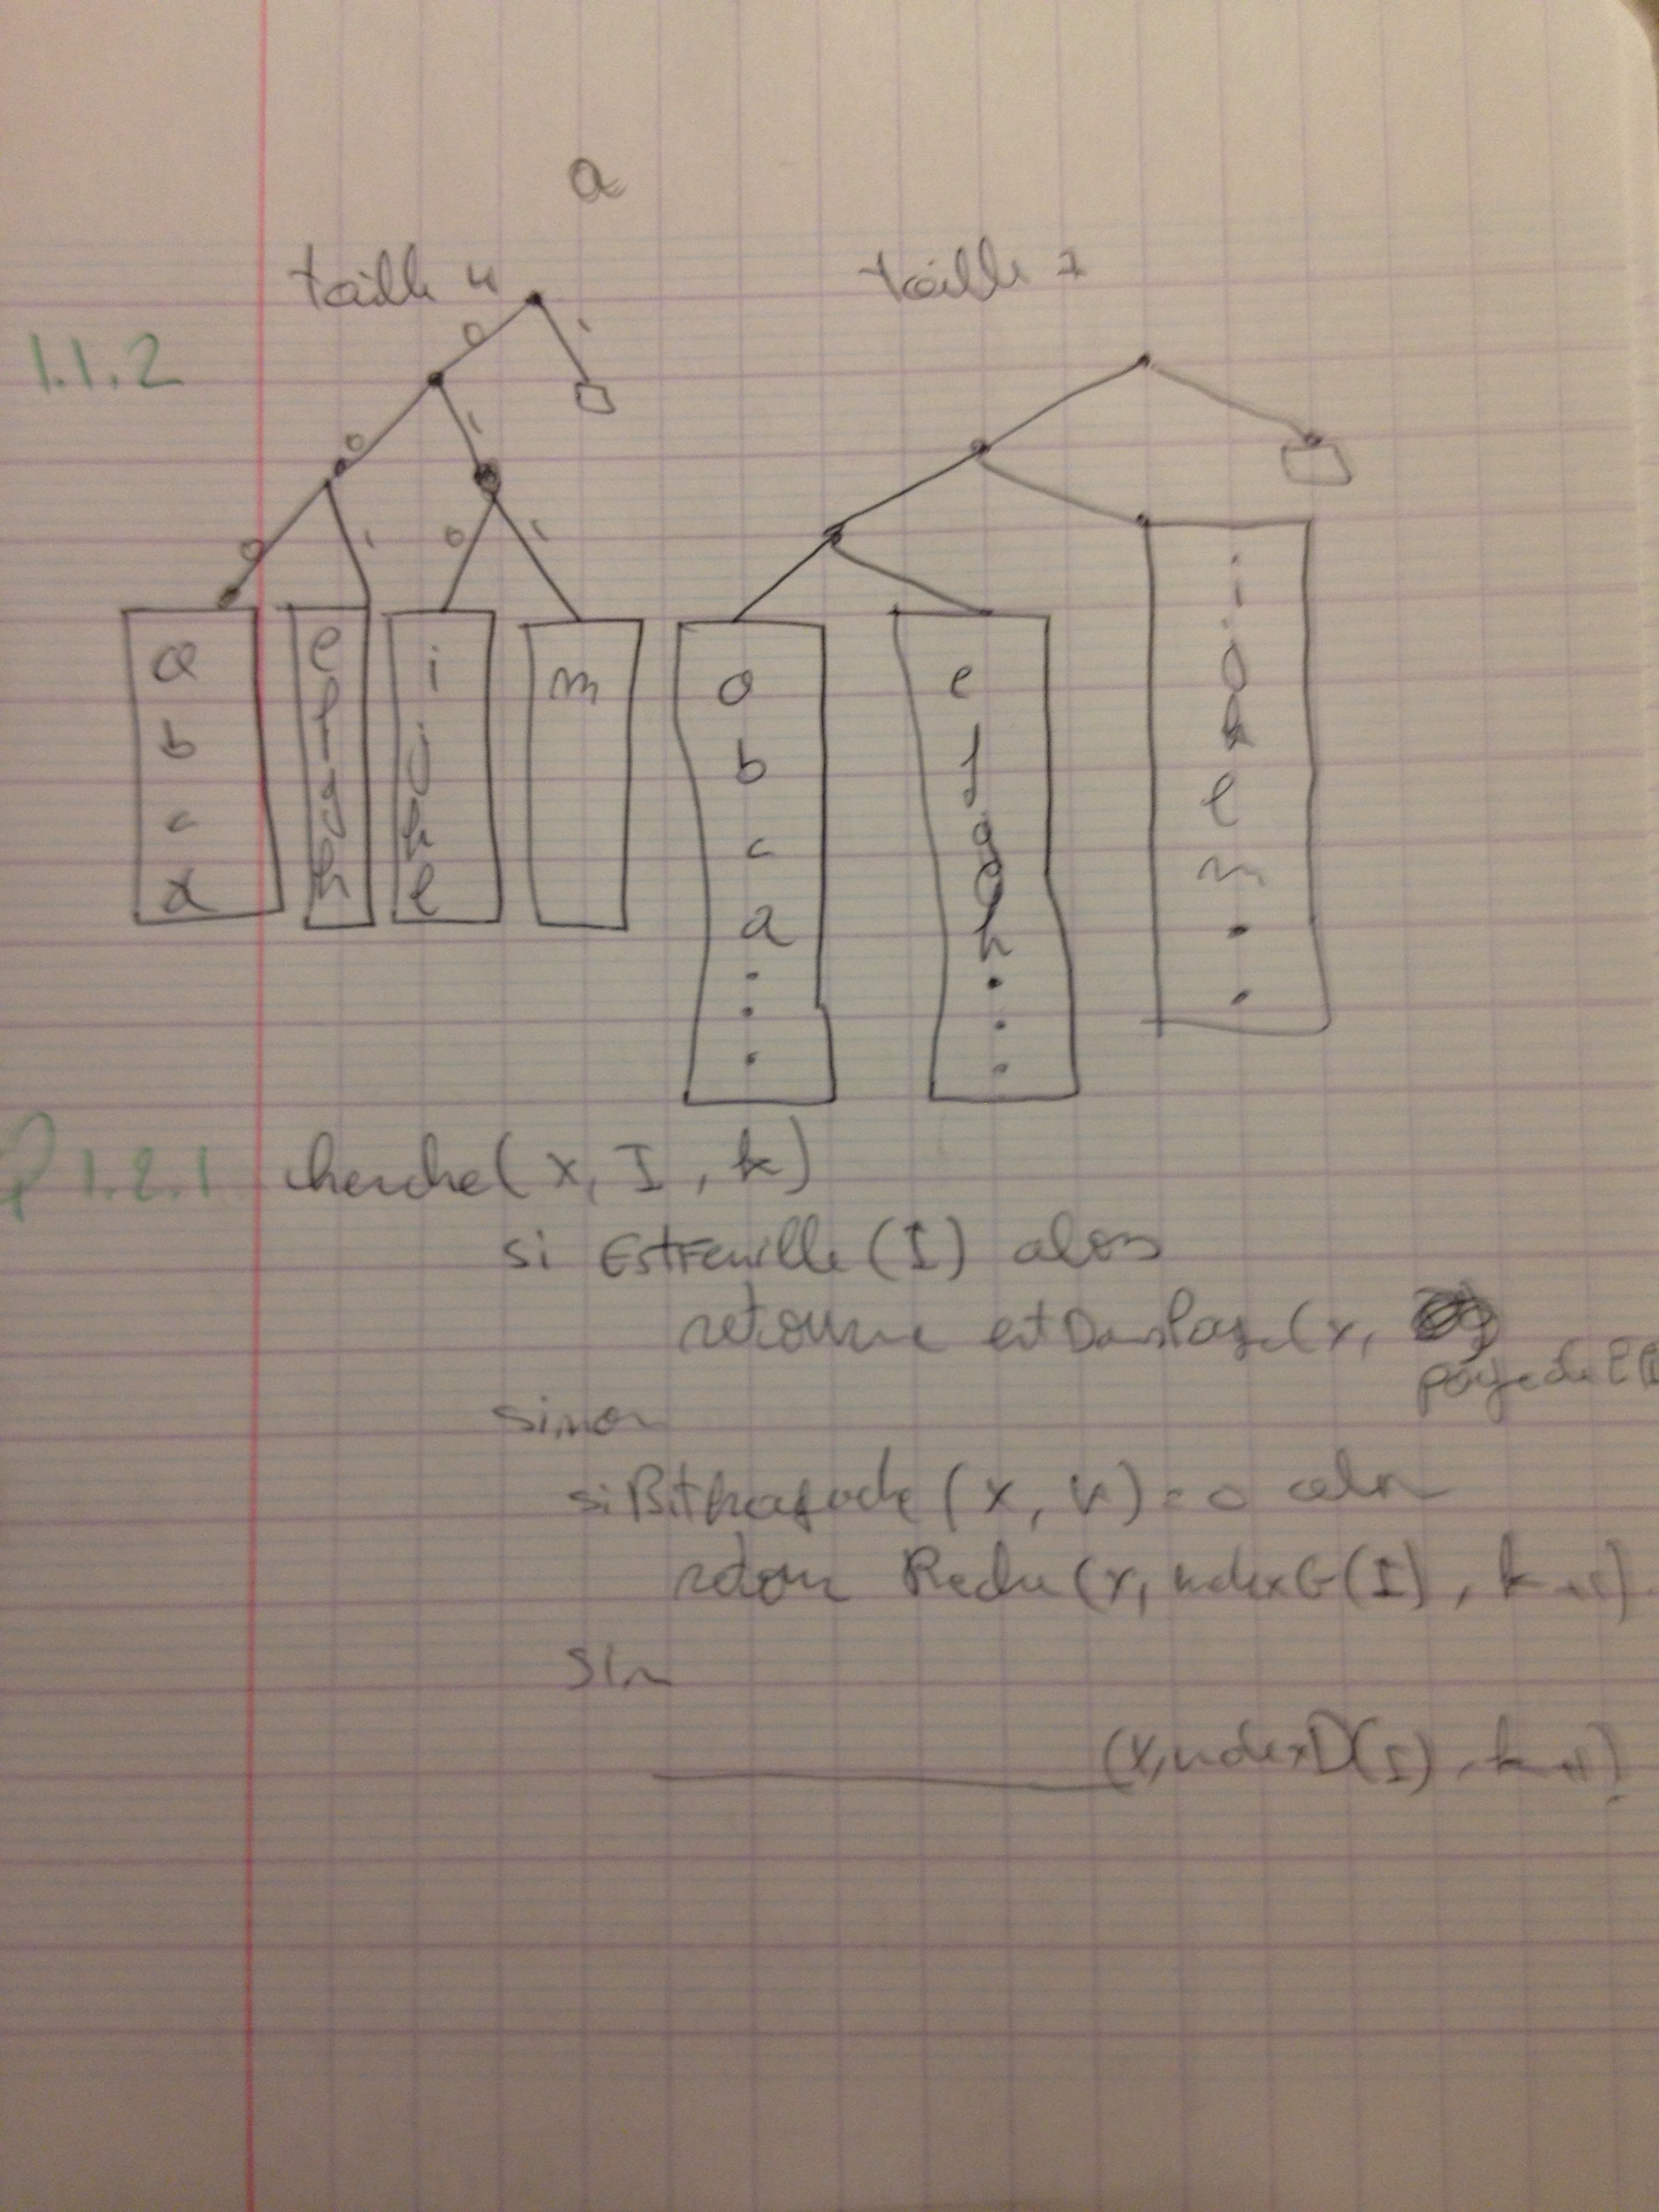 a
taille 4
taille 7
1.1.2
0 1
0 1
0 1 0 1
a b c d
e f g h
i j k l
m
a b c d . . .
e f g h . . .
i j k l m . .
Q 1.2.1 cherche(x, I, k)
si EstFeuille(I) alors
retourne estDansPage(x,
pagede
sinon
si (x, k) = 0 alors
retour Reche(x, indexG(I), k+1)
sin
(x, indexD(I), k+1)